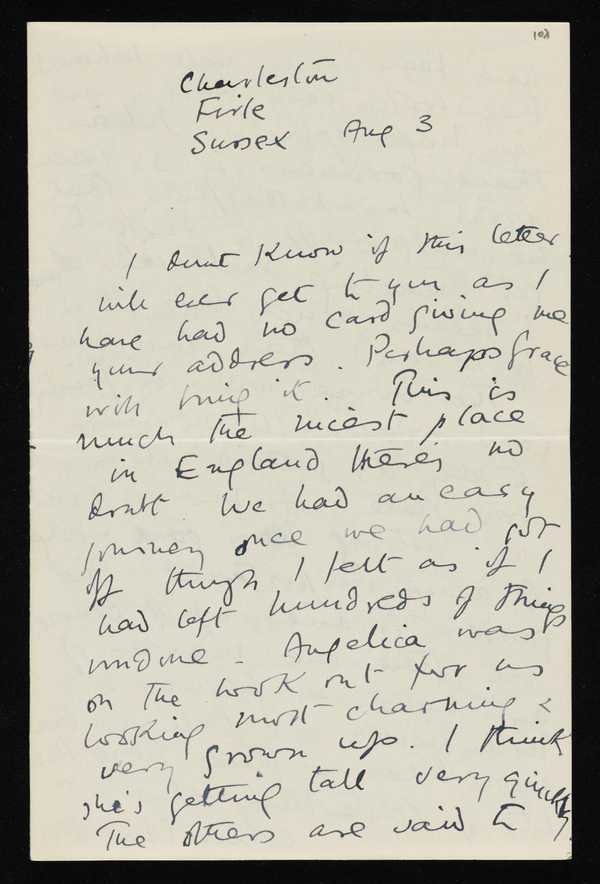 108
Charleston
Firle
Sussex Aug 3
I don't know if this letter
will ever get to you as I
have had no card giving me
your address. Perhaps Grace
will bring it. This is
much the nicest place
in England there's no
doubt. We had an easy
journey once we had got
off though I felt as if I
had left hundreds of things
undone - Angelica was
on the look out for us
looking most charming &
very grown up. I think
she's getting tall very quickly.
The others are said to